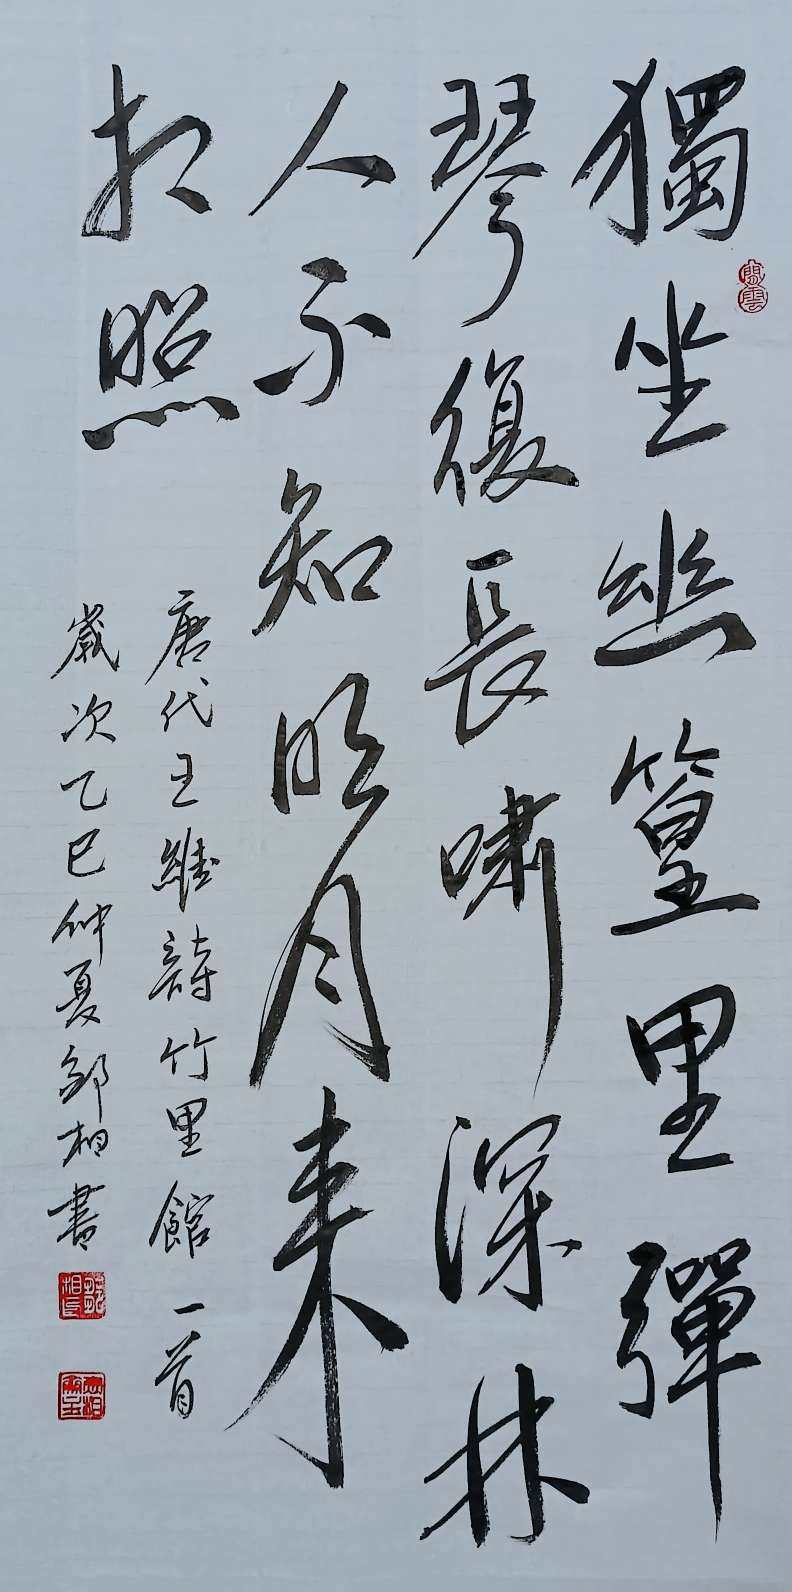 獨坐幽篁里彈
琴復長嘯深林
人不知明月来
相照
唐代王維詩竹里館一首
歲次乙巳仲夏鄒相書